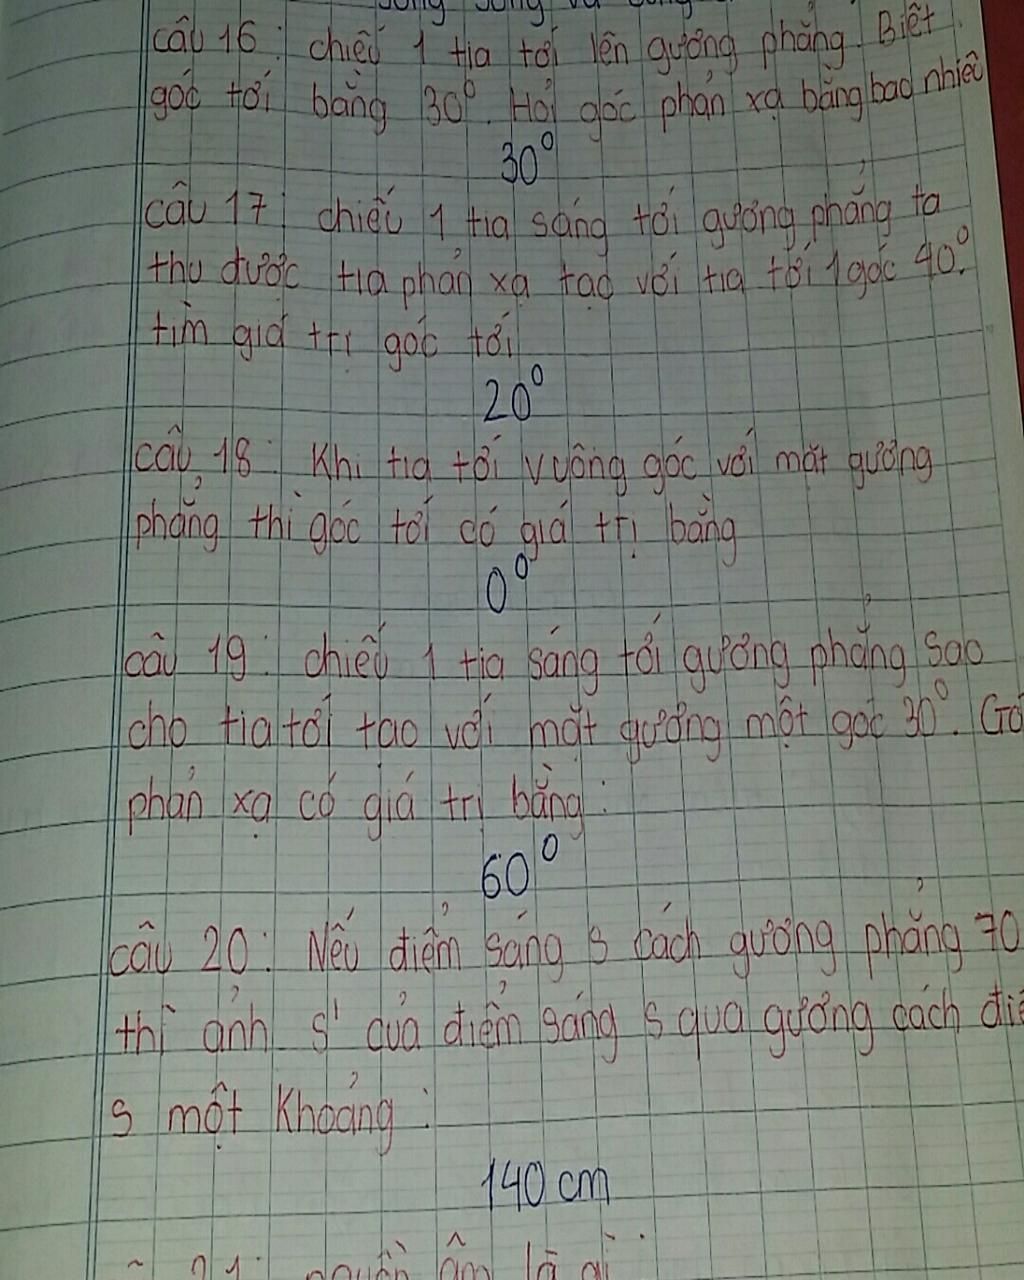 song song và
câu 16: chiếu 1 tia tới lên gương phẳng. Biết
góc tới bằng 30°. Hỏi góc phản xạ bằng bao nhiêu
30°
câu 17: chiếu 1 tia sáng tới gương phẳng ta
thu được tia phản xạ tạo với tia tới 1 góc 40°.
tìm giá trị góc tới
20°
câu 18: Khi tia tới vuông góc với mặt gương
phẳng thì góc tới có giá trị bằng
0°
câu 19: chiếu 1 tia sáng tới gương phẳng sao
cho tia tới tạo với mặt gương một góc 30°. Gó
phản xạ có giá trị bằng:
60°
câu 20: Nếu điểm sáng S cách gương phẳng 70
thì ảnh S' của điểm sáng S qua gương cách điể
S một khoảng:
140 cm
21: nguồn âm là gì